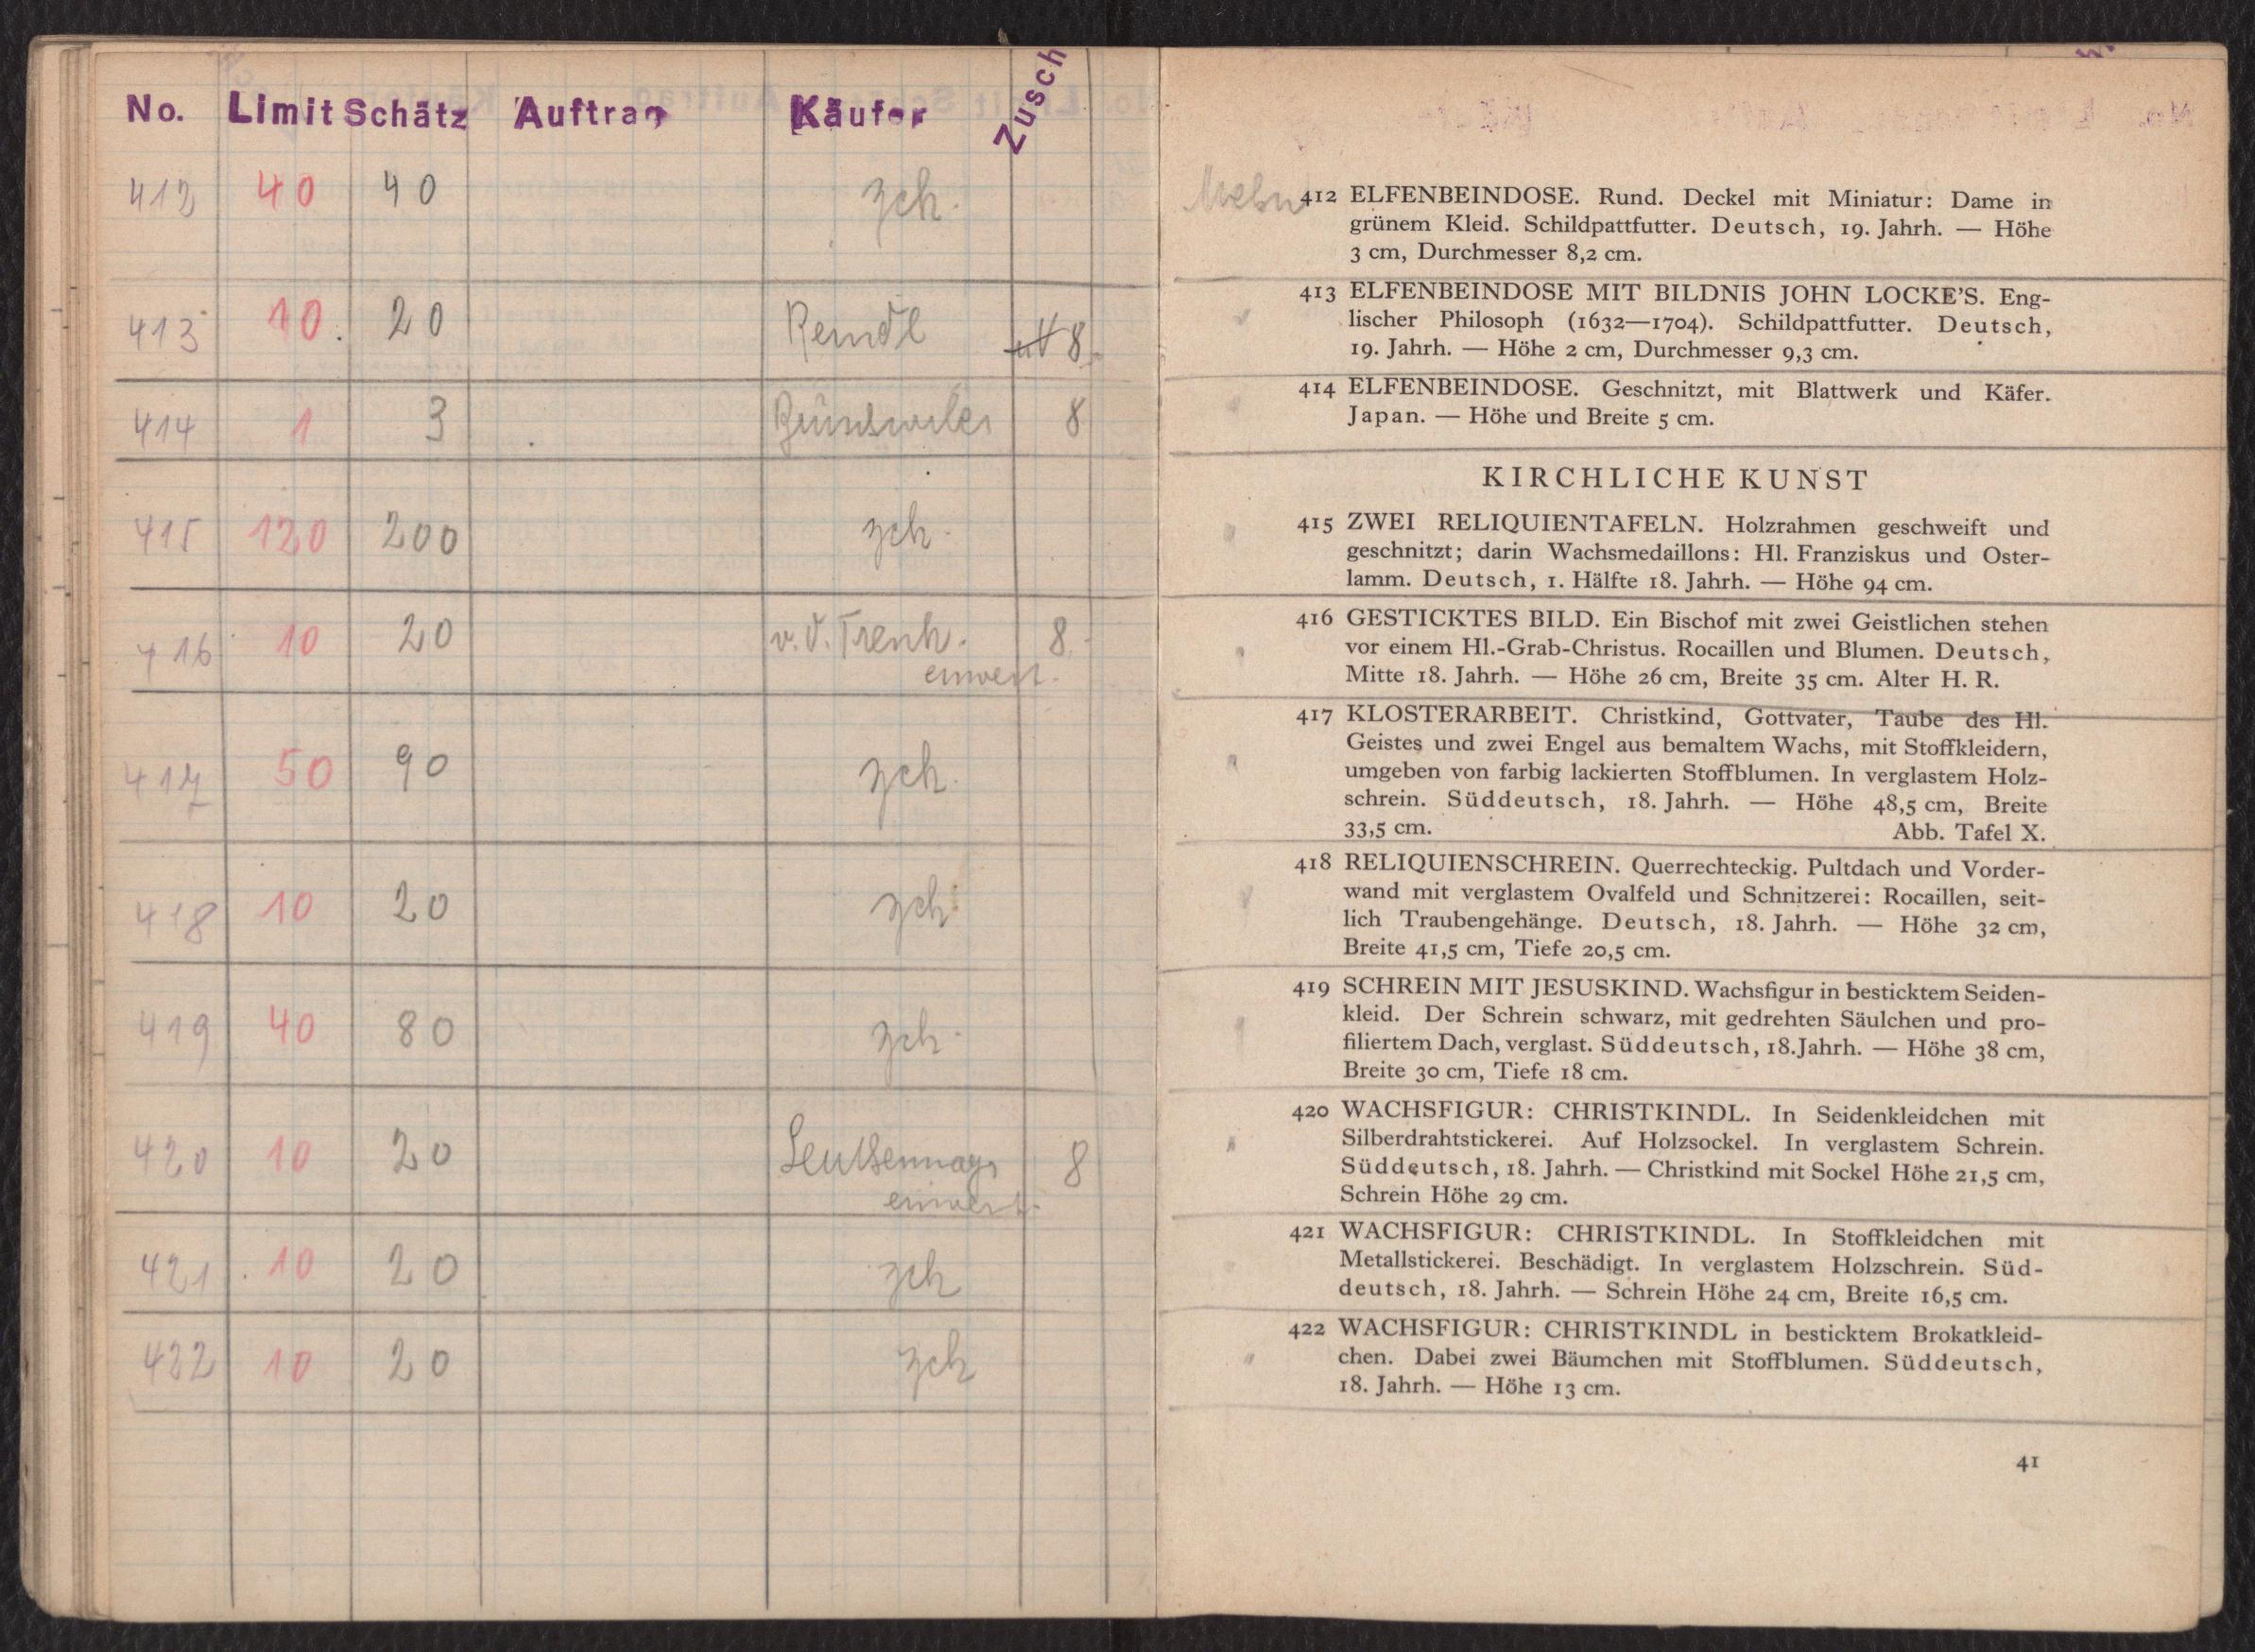 No. Limit Schätz Auftrag Käufer Zusch
412 40 40 zch.
413 10. 20 Reindl 8.
414 1 3 8
415 120 200 zch.
416 10 20 v. d. Trenk. 8.
einwert.
417 50 90 zch.
418 10 20 zch.
419 40 80 zch.
420 10 20 8
einwert.
421 10 20 zch
422 10 20 zch
412 ELFENBEINDOSE. Rund. Deckel mit Miniatur: Dame in
grünem Kleid. Schildpattfutter. Deutsch, 19. Jahrh. — Höhe
3 cm, Durchmesser 8,2 cm.
413 ELFENBEINDOSE MIT BILDNIS JOHN LOCKE'S. Eng-
lischer Philosoph (1632—1704). Schildpattfutter. Deutsch,
19. Jahrh. — Höhe 2 cm, Durchmesser 9,3 cm.
414 ELFENBEINDOSE. Geschnitzt, mit Blattwerk und Käfer.
Japan. — Höhe und Breite 5 cm.
KIRCHLICHE KUNST
415 ZWEI RELIQUIENTAFELN. Holzrahmen geschweift und
geschnitzt; darin Wachsmedaillons: Hl. Franziskus und Oster-
lamm. Deutsch, 1. Hälfte 18. Jahrh. — Höhe 94 cm.
416 GESTICKTES BILD. Ein Bischof mit zwei Geistlichen stehen
vor einem Hl.-Grab-Christus. Rocaillen und Blumen. Deutsch,
Mitte 18. Jahrh. — Höhe 26 cm, Breite 35 cm. Alter H. R.
417 KLOSTERARBEIT. Christkind, Gottvater, Taube des Hl.
Geistes und zwei Engel aus bemaltem Wachs, mit Stoffkleidern,
umgeben von farbig lackierten Stoffblumen. In verglastem Holz-
schrein. Süddeutsch, 18. Jahrh. — Höhe 48,5 cm, Breite
33,5 cm. Abb. Tafel X.
418 RELIQUIENSCHREIN. Querrechteckig. Pultdach und Vorder-
wand mit verglastem Ovalfeld und Schnitzerei: Rocaillen, seit-
lich Traubengehänge. Deutsch, 18. Jahrh. — Höhe 32 cm,
Breite 41,5 cm, Tiefe 20,5 cm.
419 SCHREIN MIT JESUSKIND. Wachsfigur in besticktem Seiden-
kleid. Der Schrein schwarz, mit gedrehten Säulchen und pro-
filiertem Dach, verglast. Süddeutsch, 18. Jahrh. — Höhe 38 cm,
Breite 30 cm, Tiefe 18 cm.
420 WACHSFIGUR: CHRISTKINDL. In Seidenkleidchen mit
Silberdrahtstickerei. Auf Holzsockel. In verglastem Schrein.
Süddeutsch, 18. Jahrh. — Christkind mit Sockel Höhe 21,5 cm,
Schrein Höhe 29 cm.
421 WACHSFIGUR: CHRISTKINDL. In Stoffkleidchen mit
Metallstickerei. Beschädigt. In verglastem Holzschrein. Süd-
deutsch, 18. Jahrh. — Schrein Höhe 24 cm, Breite 16,5 cm.
422 WACHSFIGUR: CHRISTKINDL in besticktem Brokatkleid-
chen. Dabei zwei Bäumchen mit Stoffblumen. Süddeutsch,
18. Jahrh. — Höhe 13 cm.
41